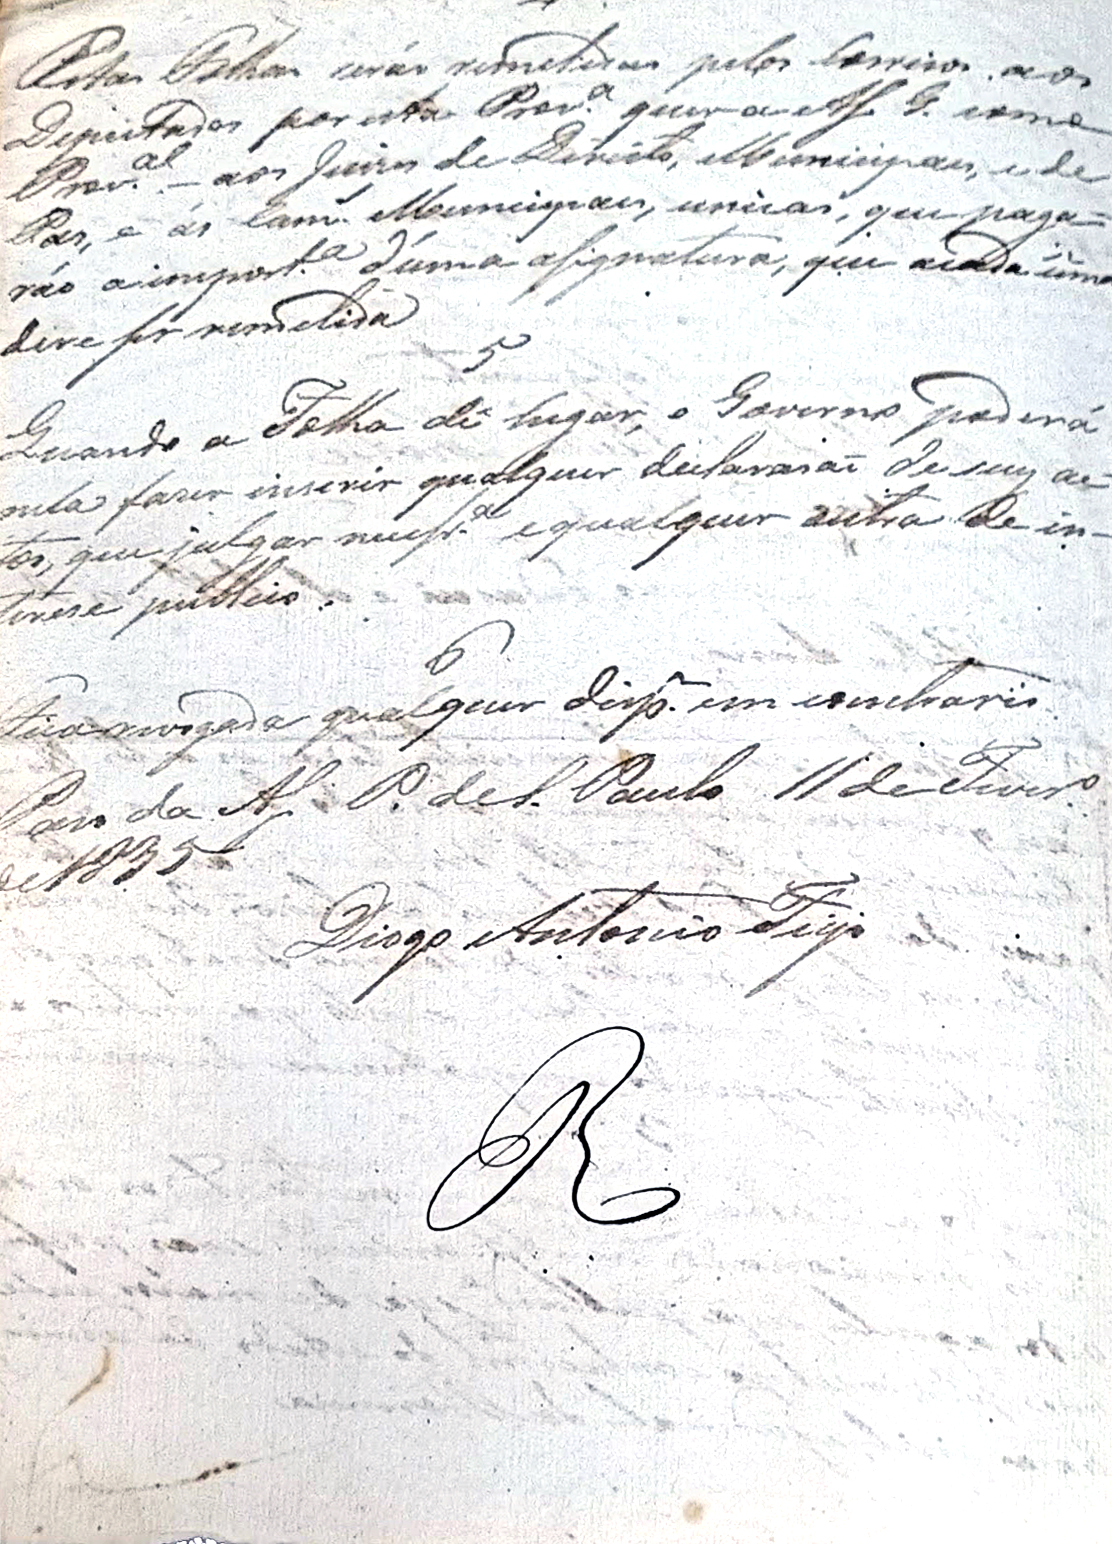 Estas Folhas serás remetidas pelos Correios aos
Deputados por esta Prov.ª quer a Aſ. G. como
Prov.al — aos Juizes de Direito, Municipaes, e de
Paz, e ás Cam. Municipaes, unicas, que paga-
ráo a import.ª d'uma aſignatura, que acada uma
deve ser remetida
5
Quando a Folha dê lugar, o Governo poderá
nela fazer inserir qualquer declarasaõ de seus ac-
tos, que julgar neceſs.ª e qualquer outra de in-
terese publico.
6
Fica revogada qualquer disp. em contrario
Paso da Aſ. P. de S. Paulo 11 de Fever.o
de 1835
Diogo Antonio Feijo
R